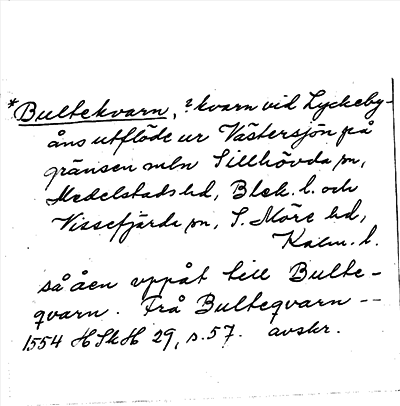 *Bultekvarn, ? kvarn vid Lyckeby-
åns utflöde ur Västersjön på
gränsen mln Sillhövda sn,
Medelstads hd, Blek. l. och
Vissefjärda sn, S. Möre hd,
Kalm. l.
så åen uppåt till Bulte-
qvarn. Frå Bulteqvarn --
1554 HSkH 29, s. 57. avskr.